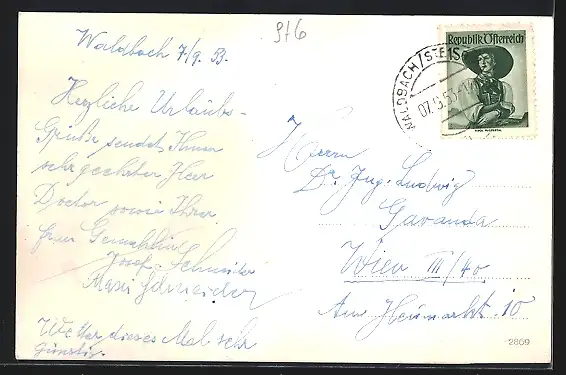 Waldbach 7/9. 53.
Herzliche Urlaubs-
Grüße sendet Ihnen
sehr geehrter Herr
Doctor sowie Ihrer
frau Gemahlin
Josef Schneider
Marie Schneider
Wetter dieses Mal sehr
günstig.
9/6
Republik Österreich
1S
WALDBACH / STE
07.9.53-1
Herrn
Dr. Ing. Ludwig
Gavanda
Wien III/40
Am Heumarkt 10
2809